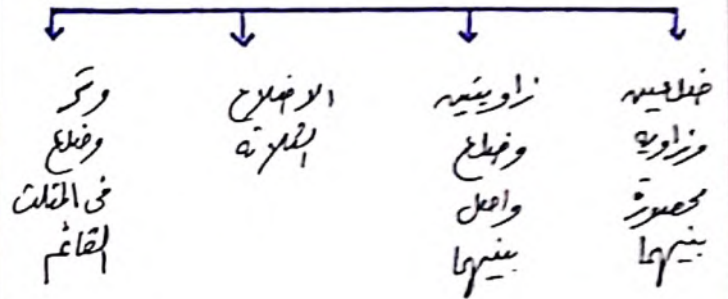 ضلعين
وزاوية
محصورة
بينهما
زاويتين
وضلع
واصل
بينهما
الاضلاع
الثلاثة
وتر
وضلع
فى المثلث
القائم